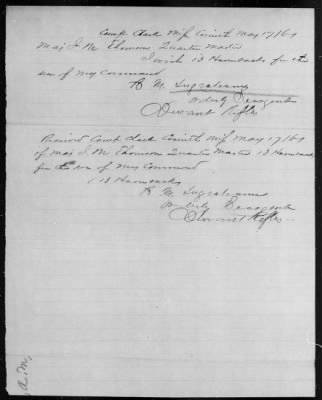 Camp Clark Miss Corinth May 17/61
Maj J. M. Thomson Quarter Master
I wish 13 Haversacks for the
use of My Command
A M.
Orderly Seargent
Rifles
Received Camp Clark Corinth Miss May 17/61
of Maj J. M. Thomson Quarter Master 13 Haversacks
for the use of My Command
13 Haversacks
A M
Orderly Seargent
Rifles
A. M.